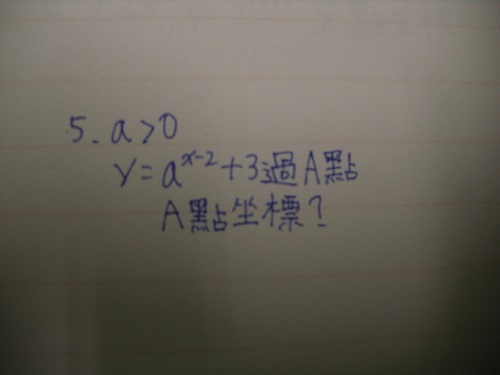 5. a>0
y=a^{x-2}+3過A點
A點坐標?